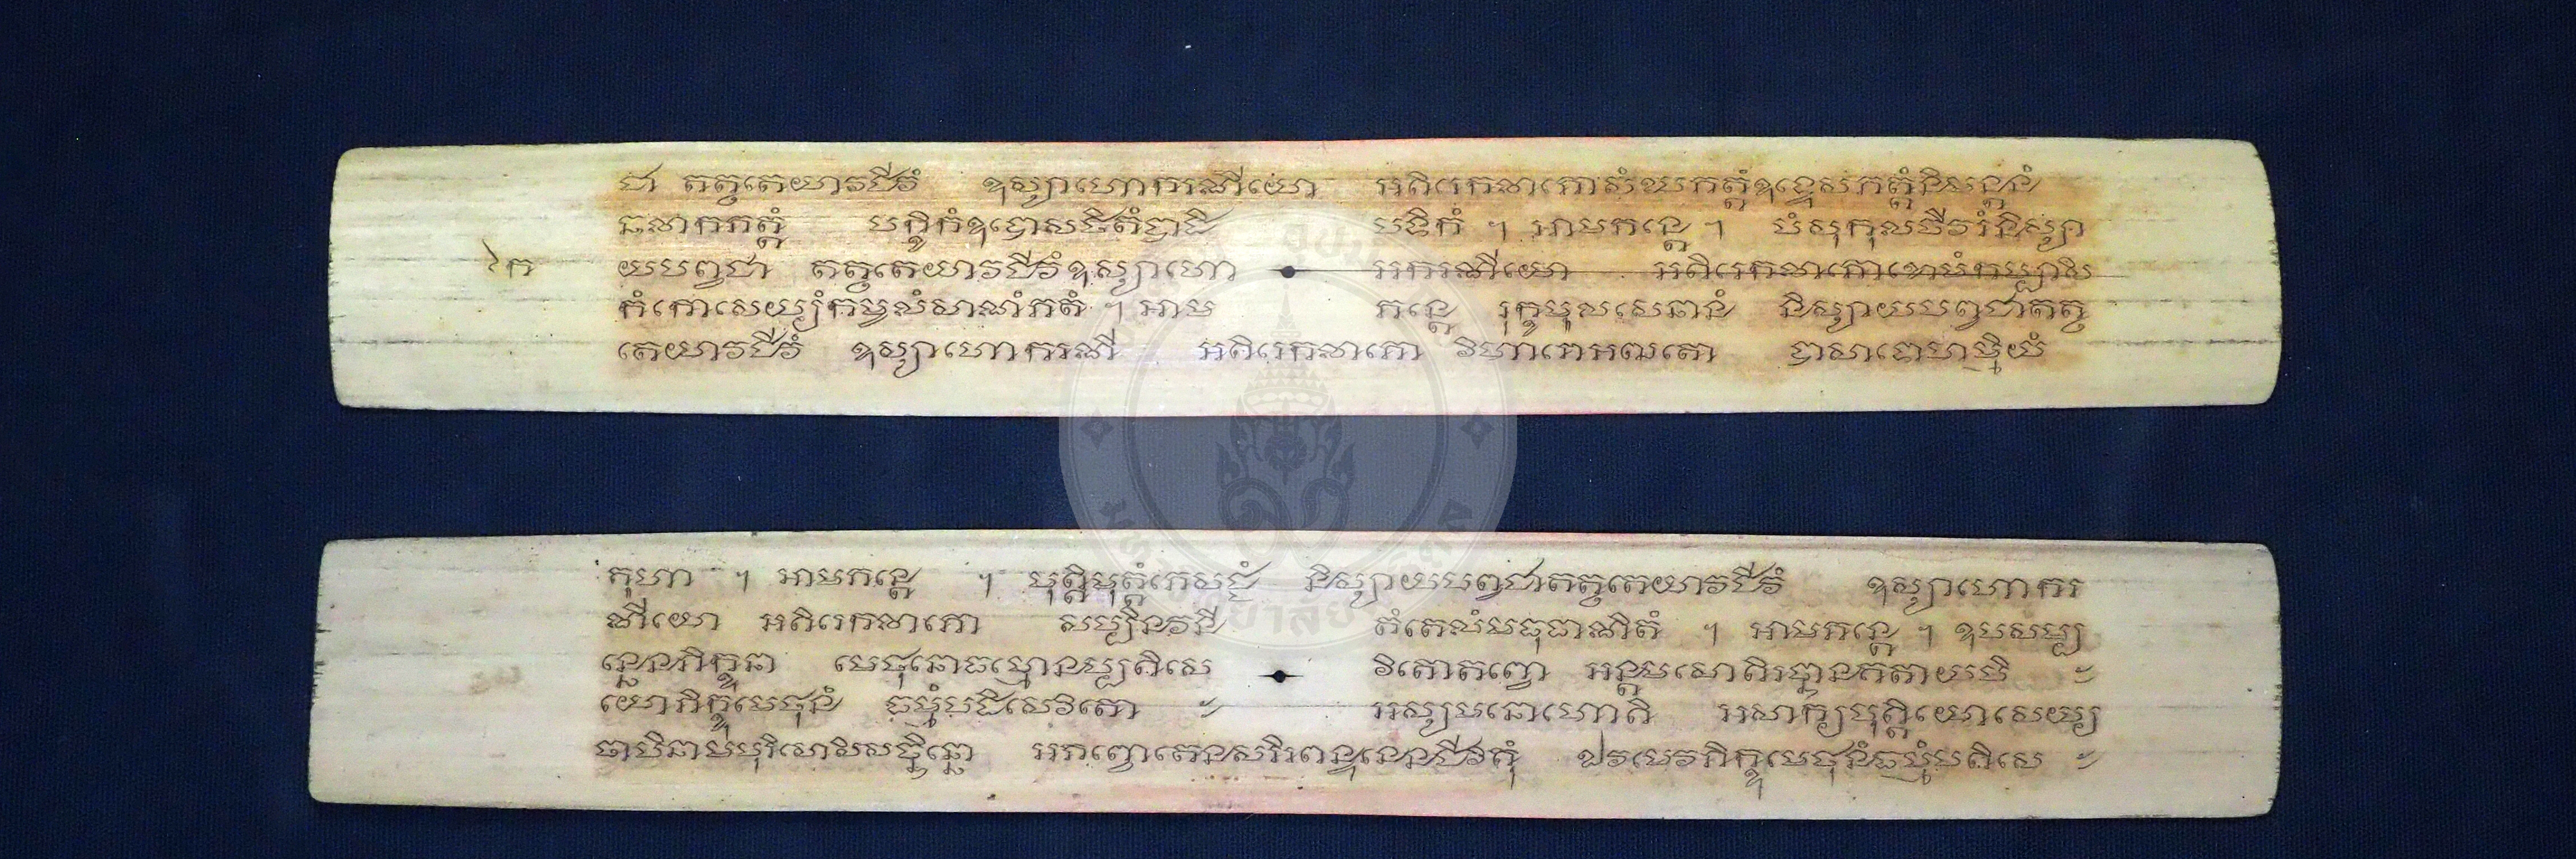 ជា តត្ថតេយាវជីវំ ឧស្សាហោករណីយោ អតិរេកលាភោសំឃភត្តំឧទ្ទេសភត្តំនិមន្តនំ
សលាកភត្តំ បក្ខិកំឧបោសថិកំបាដិ បទិកំ ។ អាមភន្តេ ។ បំសុកុលចីវរំនិស្សា
រំក យបព្វជា តត្ថតេយាវជីវំឧស្សាហោ អករណីយោ អតិរេកលាភោខោមំកប្បាសិ
កំកោសេយ្យំកម្ពលំសាណំភតំ ។ អាម ភន្តេ រុក្ខមូលសេនាសនំ និស្សាយបព្វជាតត្ថ
តេយាវជីវំ ឧស្សាហោករណី អតិរេកលាភោ វិហារោអឍតោ បាសាទោហម្មិយំ
គុហា ។ អាមភន្តេ ។ បុត្តិមុត្តំភេសជ្ជំ និស្សាយបព្វជាតត្ថតេយាវជីវំ ឧស្សាហោករ
ណីយោ អតិរេកលាភោ សប្បិនវនី តំតេលំមធុផាណិតំ ។ អាមភន្តេ ។ ឧបសម្ប
ន្នេនភិក្ខុនា មេថុនោធម្មោនប្បតិសេ វិតោតព្វោ អន្តមសោតិរច្ឆានគតាយបិ
យោភិក្ខុមេថុនំ ធម្មំបដិសេវិតោ អស្សមនោហោតិ អសាក្យបុត្តិយោសេយ្យ
ថាបិនាមបុរិសោសិសច្ឆិន្នោ អភព្វោតេនសរិរពន្ធនេនជីវិតុំ ឯវមេវភិក្ខុមេថុនំធម្មំបតិសេ